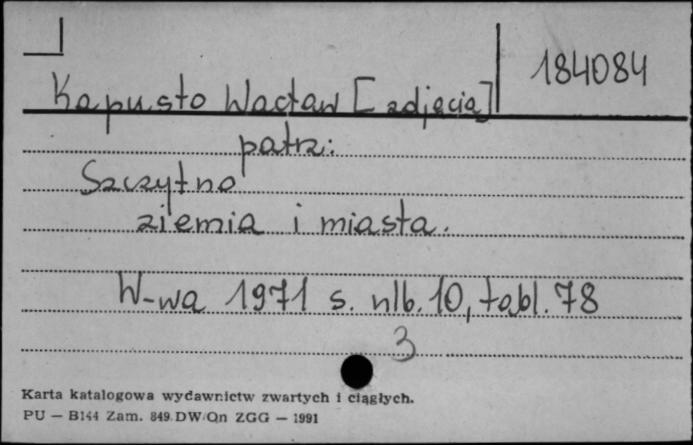 184084
Kapusto Wacław [zdjęcia]
patrz:
Szczytno
ziemia i miasta.
W-wa 1971 s. nlb. 10, tabl. 78
3
Karta katalogowa wydawnictw zwartych i ciągłych.
PU — B144 Zam. 849 DW/Qn ZGG — 1991